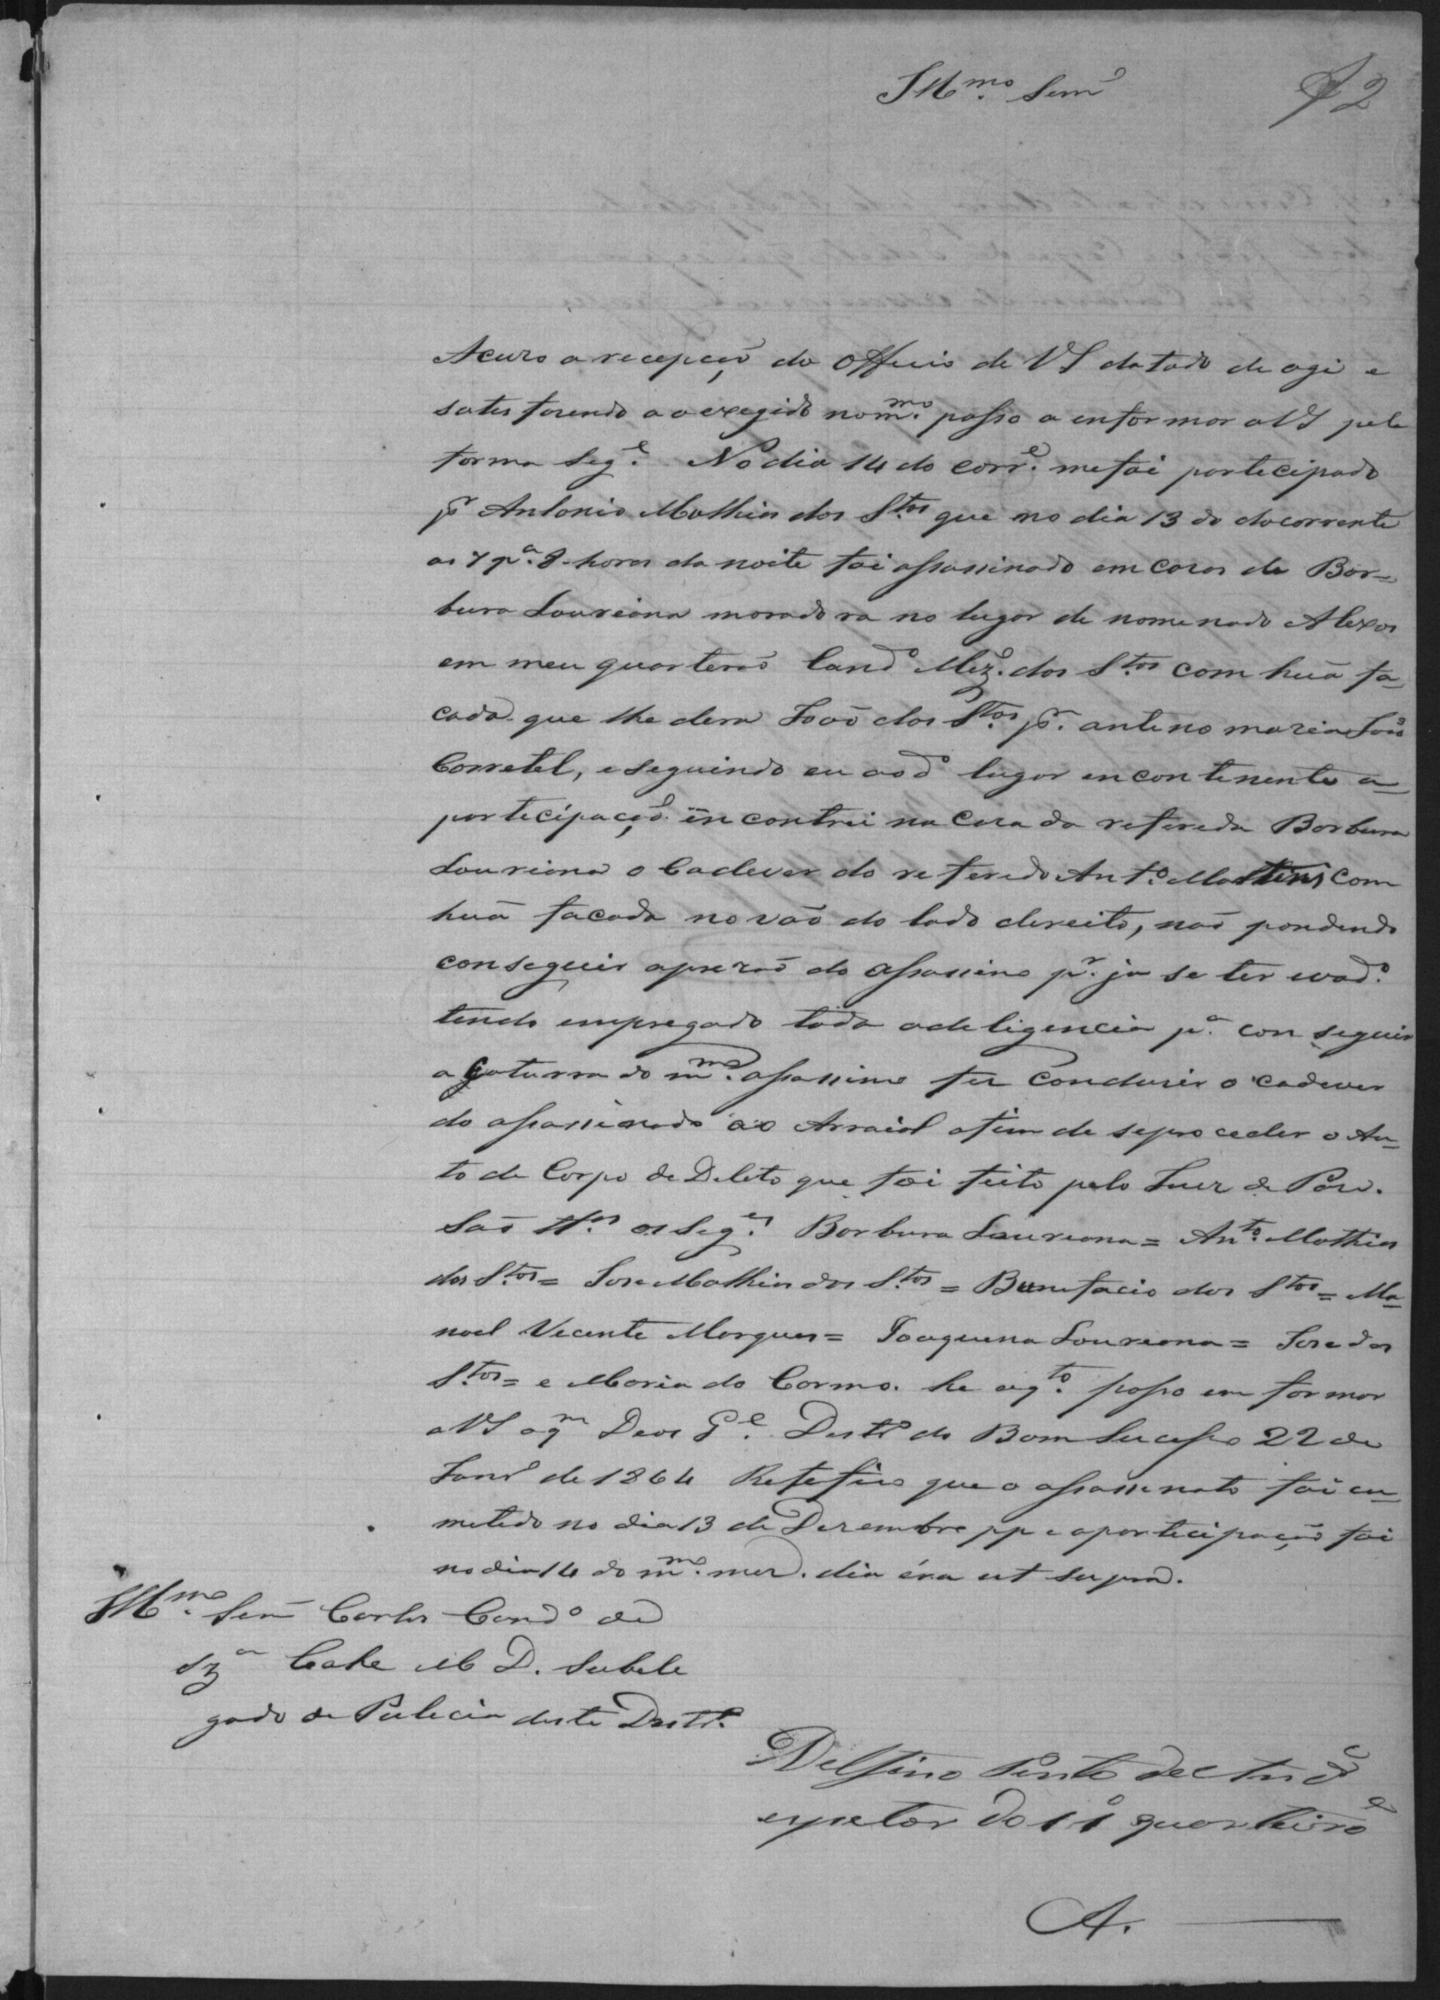 Illmo. Senr.
2
Acuzo a recepção do Officio de VS datado de ogi e
satesfazendo ao exegido no mmo. passo a enformar a VS pela
forma Sege. No dia 14 do corre. me foi partecipado
pr Antonio Mathias dos Stos. que no dia 13 do do corrente
as 7 pa. 8 horas da noite foi assassinado em cazas de Bar=
bura Laureana moradora no lugar denomenado Alexos
em meu quarterão Cando Miz. dos Stos. com huã fa=
cada que lhe dera João dos Stos. pr. antenomazia João
Corretel, e seguindo eu ao do lugar encontenente a=
partecipação encontrei na Caza da refereda Barbura
Lauriana o Cadever do referedo Anto. Martins com
huã facada no vão do lado dereito, não pondendo
conseguir aprezão do assassino pr. ja se ter evado.
tendo empregado toda adeligencia pa. conseguir
a Captura do mmo. assassino fez conduzir o cadever
do assassinado ao Arraial afim de se proceder o Au=
to de Corpo de Deleto que foi feito pelo Juez de Paz.
São ttas. os Seges. Barbura Laureana = Anto. Mathias
dos Stos. = Jose Mathias dos Stos. = Bunefacio dos Stos. = Ma=
noel Vecente Marques = Joaquena Laureana = Jose dos
Stos. = e Maria do Carmo. he oqto. posso em formar
a VS a qm Deos Ge. Destro. do Bom Sucesso 22 de
Janro de 1864 Retefico que o assassenato foi cu=
metedo no dia 13 de Dezembro pp e a partecipação foi
no dia 14 do mmo. mez. dia éra ut supra.
Illmo. Senr Carlos Cando de
Sza Cake M D. Subele
gado de Polecia deste Destro.
Delfino Pinto de Andre
espetor do 11º quarteirão
A.